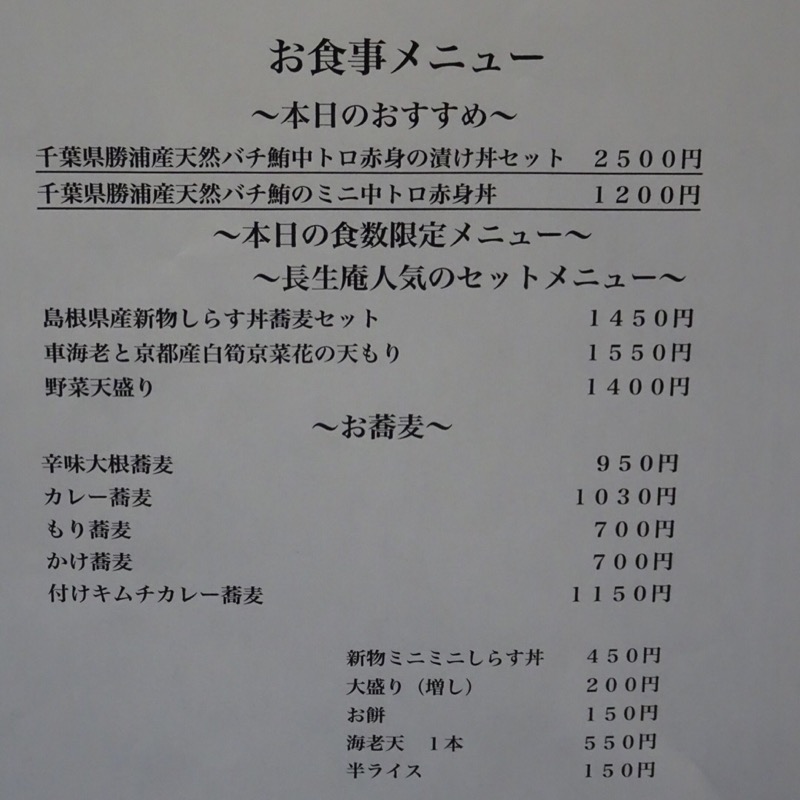 お食事メニュー
～本日のおすすめ～
千葉県勝浦産天然バチ鮪中トロ赤身の漬け丼セット　２５００円
千葉県勝浦産天然バチ鮪のミニ中トロ赤身丼　１２００円
～本日の食数限定メニュー～
～長生庵人気のセットメニュー～
島根県産新物しらす丼蕎麦セット　１４５０円
車海老と京都産白筍京菜花の天もり　１５５０円
野菜天盛り　１４００円
～お蕎麦～
辛味大根蕎麦　９５０円
カレー蕎麦　１０３０円
もり蕎麦　７００円
かけ蕎麦　７００円
付けキムチカレー蕎麦　１１５０円
新物ミニミニしらす丼　４５０円
大盛り（増し）　２００円
お餅　１５０円
海老天　１本　５５０円
半ライス　１５０円